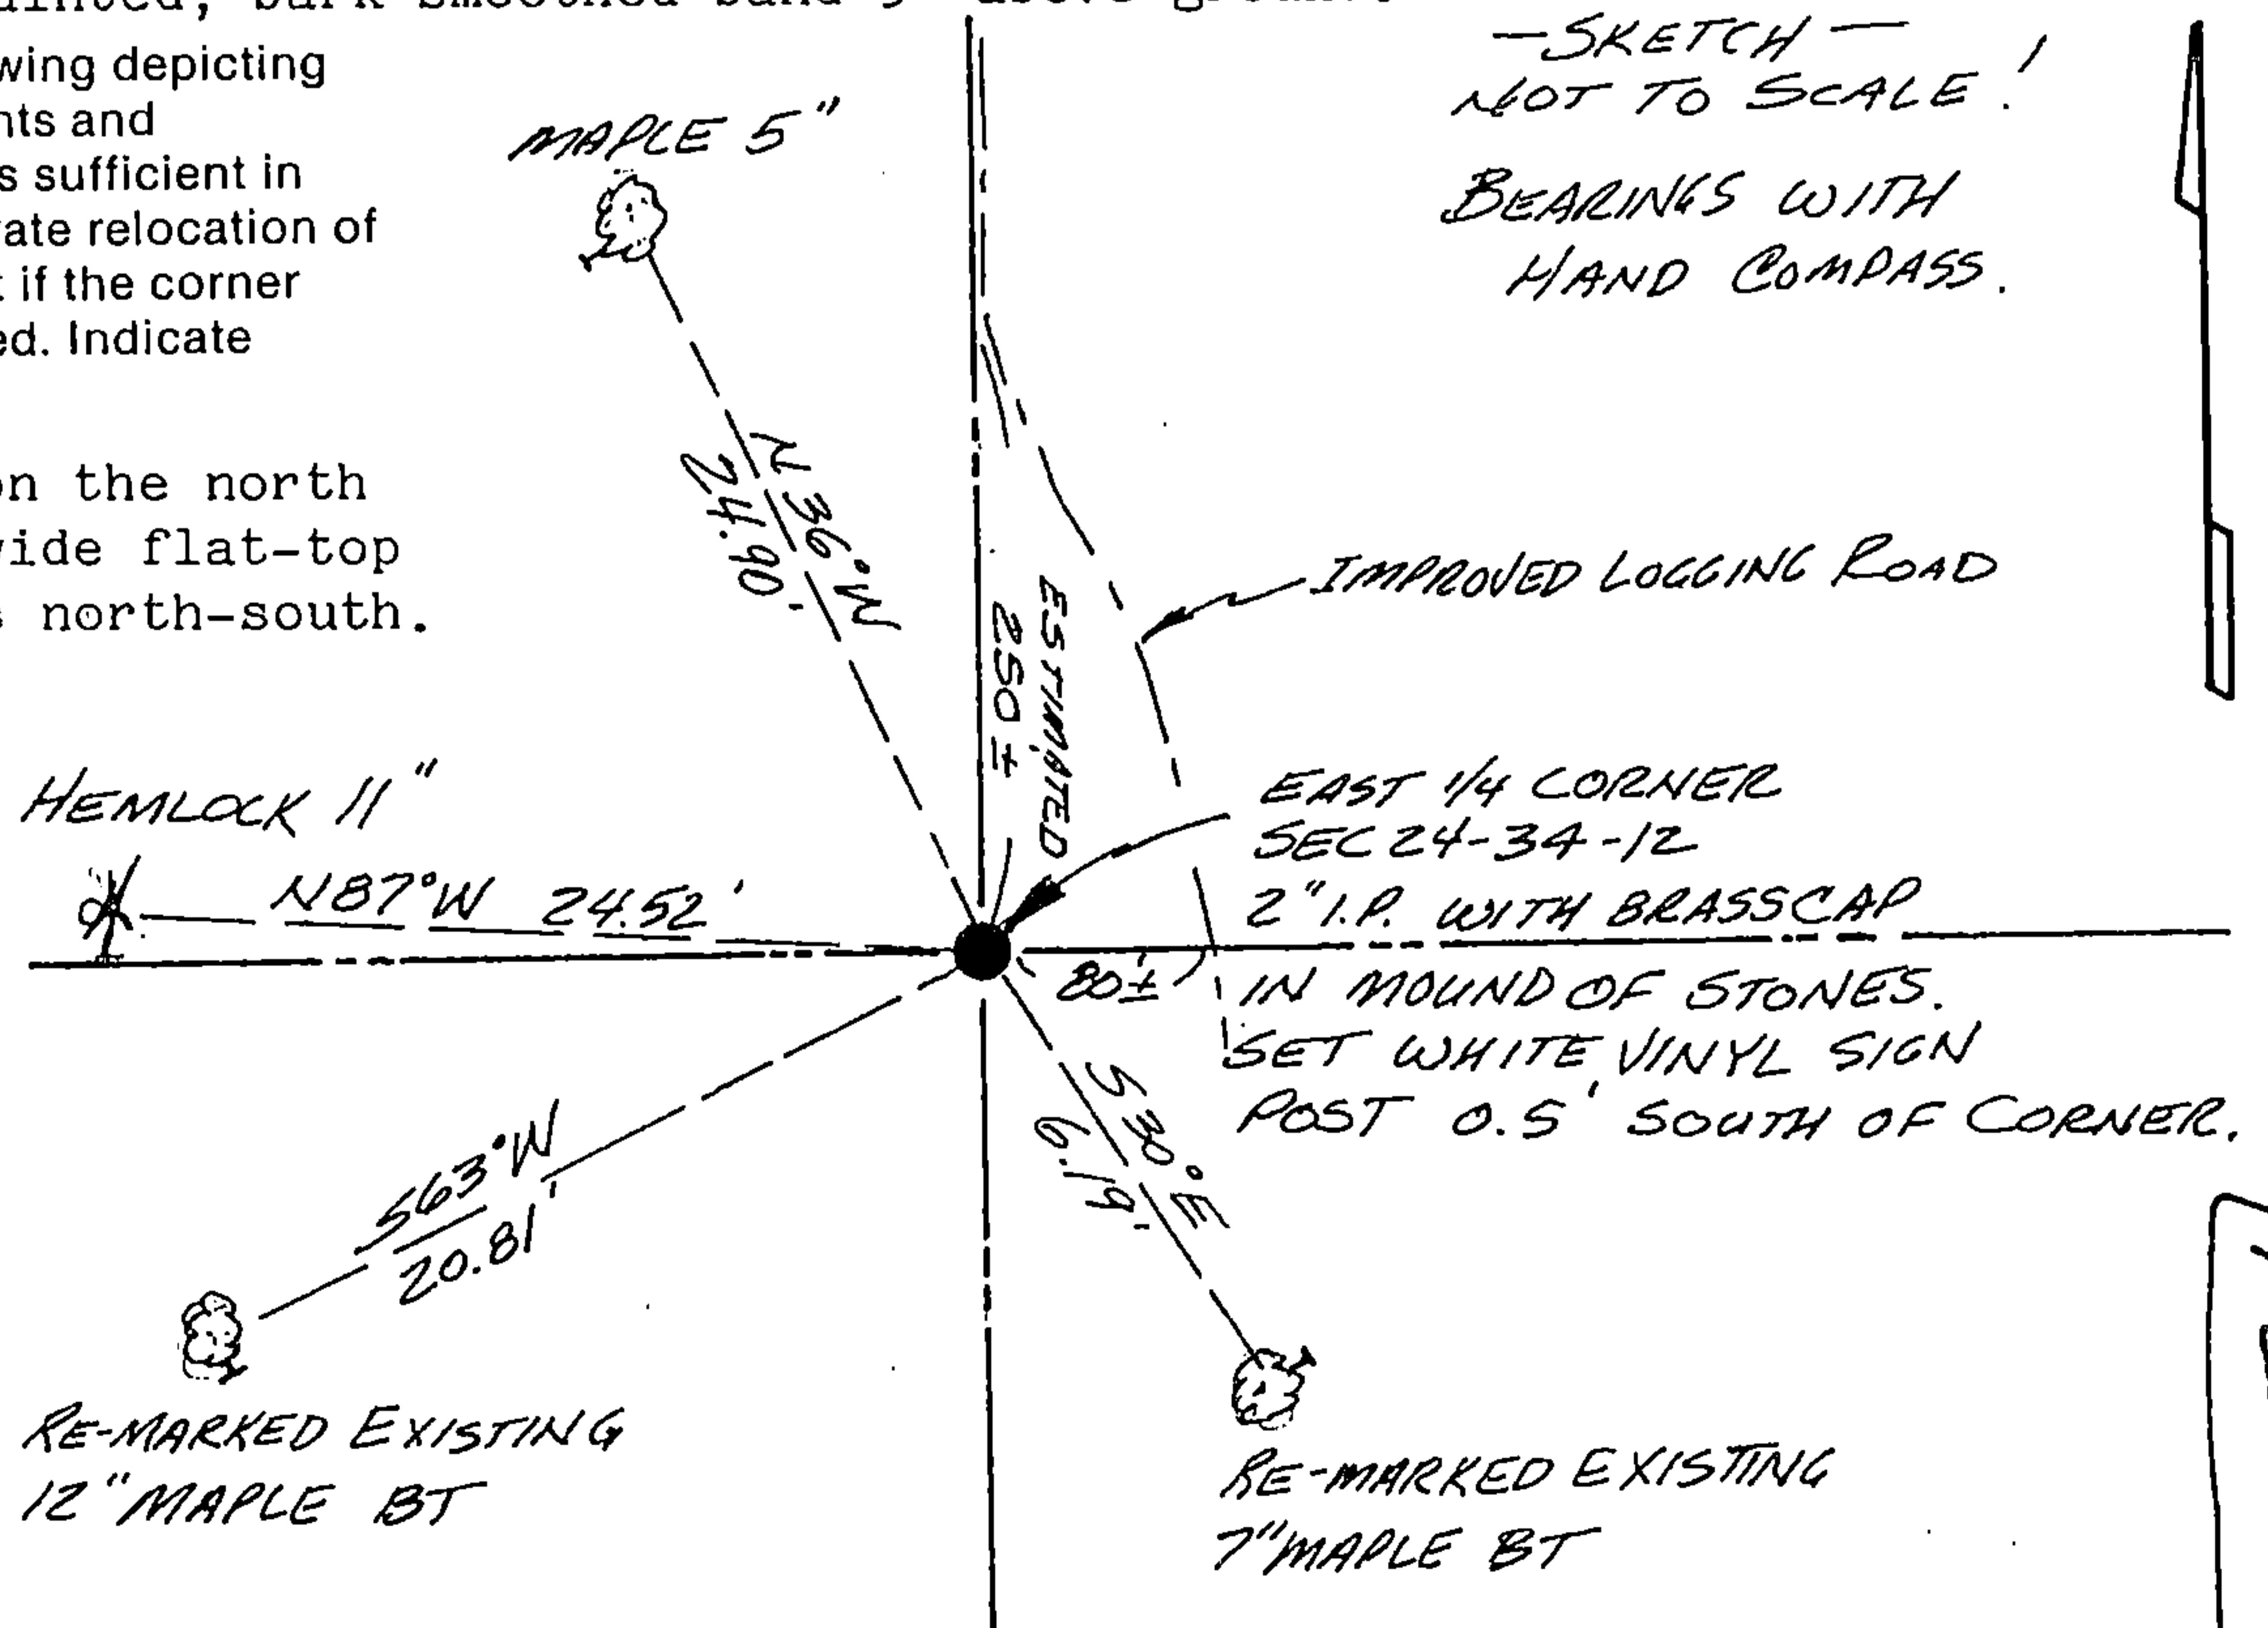 above ground.
wing depicting
nts and
s sufficient in
rate relocation of
t if the corner
ed. Indicate
on the north
wide flat-top
s north-south.
—SKETCH—
NOT TO SCALE!
BEARINGS WITH
HAND COMPASS.
MAPLE 5"
N 36°W
24.90'
IMPROVED LOGGING ROAD
ESTIMATED
250 ±
HEMLOCK 11"
N87°W 24.52'
EAST 1/4 CORNER
SEC 24-34-12
2" I.P. WITH BRASSCAP
IN MOUND OF STONES.
SET WHITE VINYL SIGN
POST 0.5' SOUTH OF CORNER.
80'±
S63°W
20.81'
S 30°E
6.19'
RE-MARKED EXISTING
12" MAPLE BT
RE-MARKED EXISTING
7" MAPLE BT